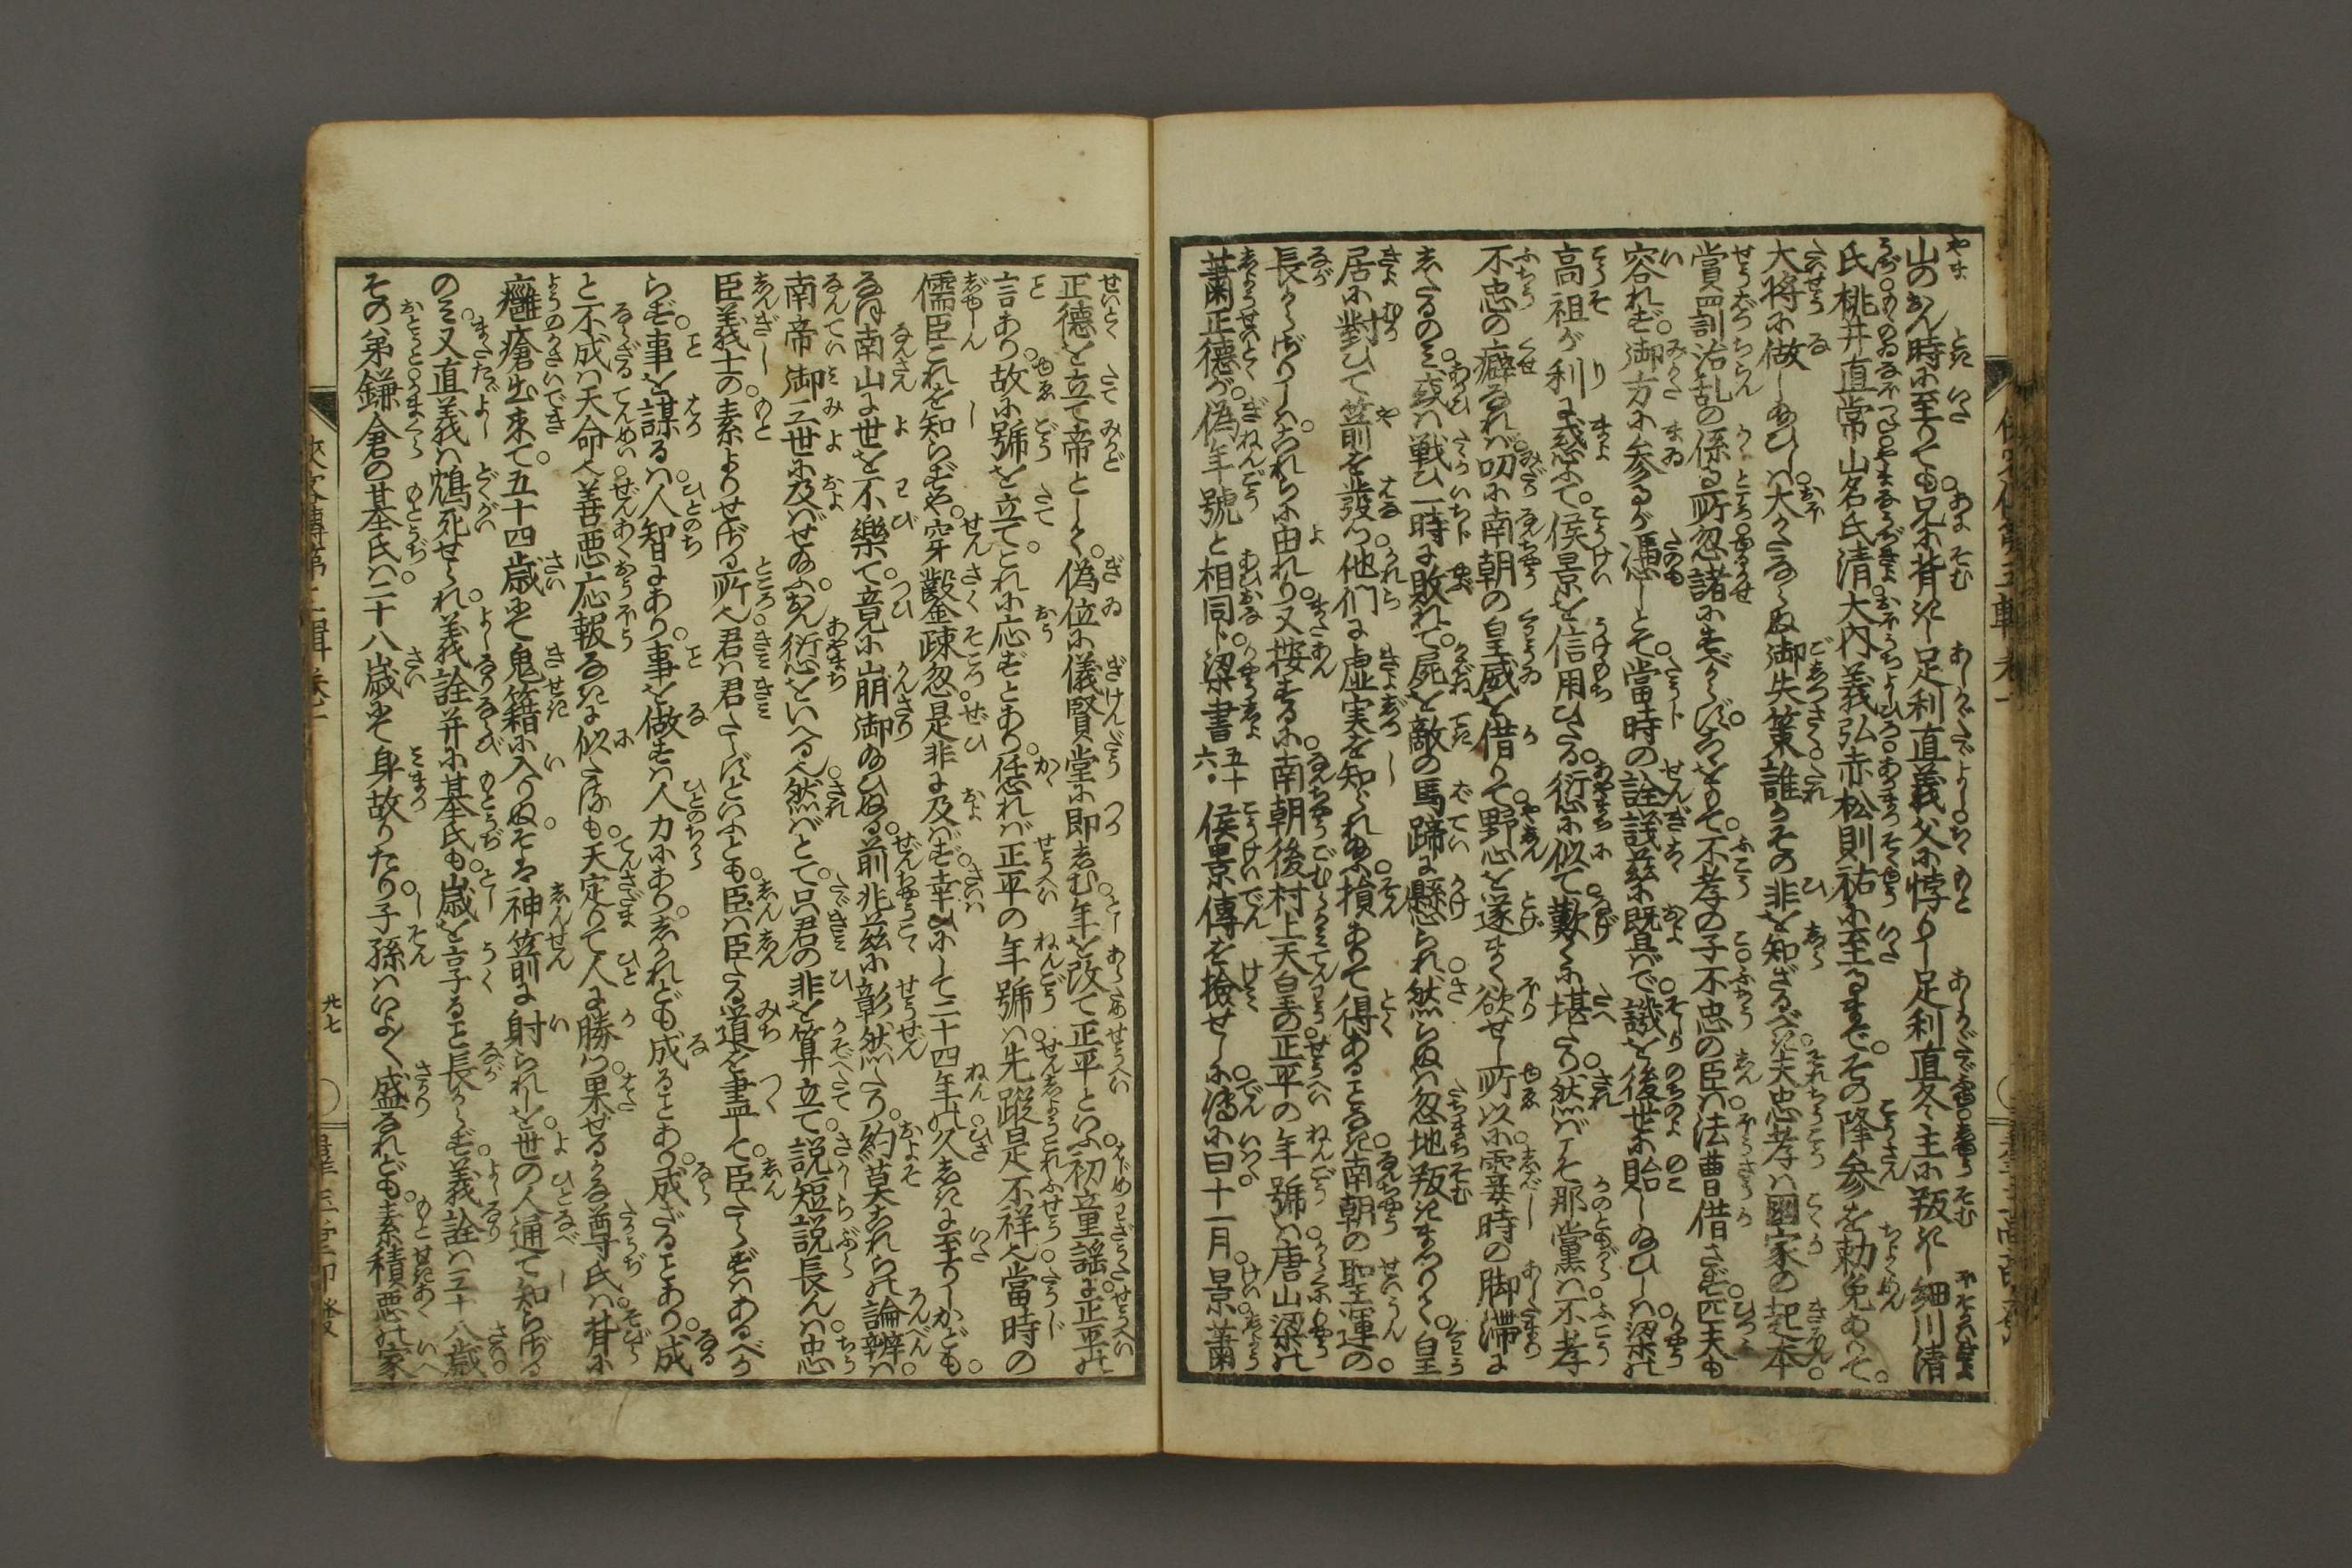 山のおん時に至りても。只に背きし足利直義父に悖りし足利直冬主に叛きし細川清
氏桃井直常山名氏清大内義弘赤松則祐に至るまで。その降参を勅免ありて。
大将に做しぬひしは大かたならぬ御失策誰かその非を知ざるべき夫忠孝は国家の起本
賞罰治乱の係る所忽諸にすべからず。こゝをもて。不孝の子不忠の臣は法曹借さず。匹夫も
容れず。御方に参るが憑しとて。當時の詮議茲に既及ばで譏を後世に貽しぬひしは梁の
高祖が利に惑ふて。侯景を信用ひたる。衍に似て歎くに堪たり。然ばにや那黨は不孝
不忠の癖なれば。叨に南朝の皇威を借りて。野心を遂まく欲せし所以に。霎時の脚滞に
あたるのみ。或は戦ひ一時に敗れて。屍を敵の馬蹄に懸られ然らぬは忽地叛きまつりて。皇
居に對ひて箭を發つ。他們に虚実を知られぬ。損ありて得あることなき南朝の聖運の
長からざりしは。これらに由れり。又按ずるに。南朝後村上天皇の正平の年號は。唐山梁の
蕭正德が。偽年號と相同じ。梁書五十六。侯景傳を撿せしに。傳に曰十一月。景蕭
正德を立て帝とし。偽位に儀賢堂に即しむ。年を改て正平といふ。初童謡に正平の
言あり。故に號を立て。これに応ずとあり。恁れば正平の年號は。先蹤是不祥也。當時の
儒臣これを知らずや。穿鑿疎忽是非に及ばず。幸ひにして二十四年の久しきに至りしかども。
なほ南山に世を不樂て。竟に崩御ぬひぬる。前非茲に彰然たり。約莫これらの論辨は。
南帝御三世に及ばせぬふ。おん衍をといへる也。然ばとて。只君の非を算立て。説短説長んは。忠
臣義士の。素よりせざる所也。君は君たらずといふとも。臣は臣たる道を盡して。臣たらずはあるべか
らず。事を謀るは。人智にあり。事を做すは人力にあり。しかれども成ることあり。成ざることあり。成
と不成は天命也。善悪応報なきに似たるも。天定りて人に勝つ。果せるかな尊氏は。背に
癰瘡出来て。五十四歳にて鬼籍に入りぬ。そは神箭に射られしを。世の人通て知らざる
のみ。又直義は鴆死せられ。義詮并に基氏も。歳を吉子ること長からず。義詮は三十八歳
その弟。鎌倉の基氏は。二十八歳にて身故りたり。子孫はいよ〱盛なれども。素積悪の家